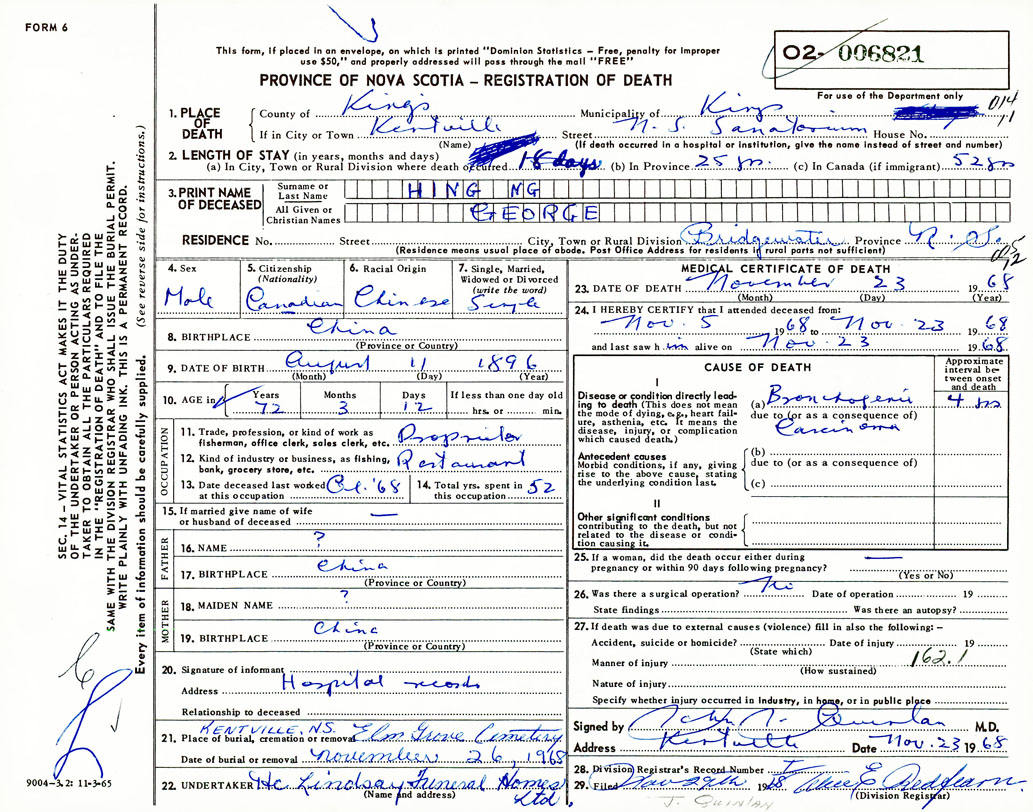 FORM 6
This form, if placed in an envelope, on which is printed "Dominion Statistics – Free, penalty for improper
use $50," and properly addressed will pass through the mail "FREE"
PROVINCE OF NOVA SCOTIA – REGISTRATION OF DEATH
02- 006821
For use of the Department only
014
11
1. PLACE OF DEATH
County of Kings Municipality of Kings
If in City or Town Kentville Street N. S. Sanatorium House No.
(Name) (If death occurred in a hospital or institution, give the name instead of street and number)
2. LENGTH OF STAY (in years, months and days)
(a) In City, Town or Rural Division where death occurred 18 days (b) In Province 25 yrs. (c) In Canada (if immigrant) 52 yrs
3. PRINT NAME OF DECEASED
Surname or Last Name HING NG
All Given or Christian Names GEORGE
RESIDENCE No. Street City, Town or Rural Division Bridgewater Province N. S.
(Residence means usual place of abode. Post Office Address for residents if rural parts not sufficient)
4. Sex Male
5. Citizenship (Nationality) Canadian
6. Racial Origin Chinese
7. Single, Married, Widowed or Divorced (write the word) Single
8. BIRTHPLACE China
(Province or Country)
9. DATE OF BIRTH August 11 1896
(Month) (Day) (Year)
10. AGE in Years 72 Months 3 Days 12 If less than one day old
hrs. or min.
OCCUPATION
11. Trade, profession, or kind of work as
fisherman, office clerk, sales clerk, etc. Proprietor
12. Kind of industry or business, as fishing,
bank, grocery store, etc. Restaurant
13. Date deceased last worked
at this occupation '68
14. Total yrs. spent in
this occupation 52
15. If married give name of wife
or husband of deceased —
FATHER
16. NAME ?
17. BIRTHPLACE China
(Province or Country)
MOTHER
18. MAIDEN NAME ?
19. BIRTHPLACE China
(Province or Country)
20. Signature of informant
Hospital records
Address
Relationship to deceased
KENTVILLE, NS. Elm Grove Cemetery
21. Place of burial, cremation or removal
Date of burial or removal November 26, 1968
22. UNDERTAKER Lindsay Funeral Homes
(Name and address) Ltd.
MEDICAL CERTIFICATE OF DEATH
23. DATE OF DEATH November 23 1968
(Month) (Day) (Year)
24. I HEREBY CERTIFY that I attended deceased from:
Nov. 5 1968 to Nov. 23 1968
and last saw h im alive on Nov. 23 1968.
CAUSE OF DEATH
Approximate interval between onset and death
I
Disease or condition directly lead-
ing to death (This does not mean
the mode of dying, e.g., heart fail-
ure, asthenia, etc. It means the
disease, injury, or complication
which caused death.)
(a) Bronchogenic 4 yrs
due to (or as a consequence of)
Carcinoma
Antecedent causes
Morbid conditions, if any, giving
rise to the above cause, stating
the underlying condition last.
(b)
due to (or as a consequence of)
(c)
II
Other significant conditions
contributing to the death, but not
related to the disease or condi-
tion causing it.
25. If a woman, did the death occur either during
pregnancy or within 90 days following pregnancy? —
(Yes or No)
26. Was there a surgical operation? No Date of operation 19
State findings Was there an autopsy?
27. If death was due to external causes (violence) fill in also the following: –
Accident, suicide or homicide? Date of injury 19
(State which)
162.1
Manner of injury
(How sustained)
Nature of injury
Specify whether injury occurred in Industry, in home, or in public place
Signed by John J. Quinlan M.D.
Address Kentville Date Nov. 23 1968
28. Division Registrar's Record Number
29. Filed 1968
(Division Registrar)
J. QUINLAN
SEC. 14 – VITAL STATISTICS ACT MAKES IT THE DUTY
OF THE UNDERTAKER OR PERSON ACTING AS UNDER-
TAKER TO OBTAIN ALL THE PARTICULARS REQUIRED
IN THE "REGISTRATION OF DEATH" AND TO FILE THE
SAME WITH THE DIVISION REGISTRAR WHO SHALL ISSUE THE BURIAL PERMIT.
WRITE PLAINLY WITH UNFADING INK. THIS IS A PERMANENT RECORD.
Every item of information should be carefully supplied. (See reverse side for instructions.)
9004-3.2: 11-3-65